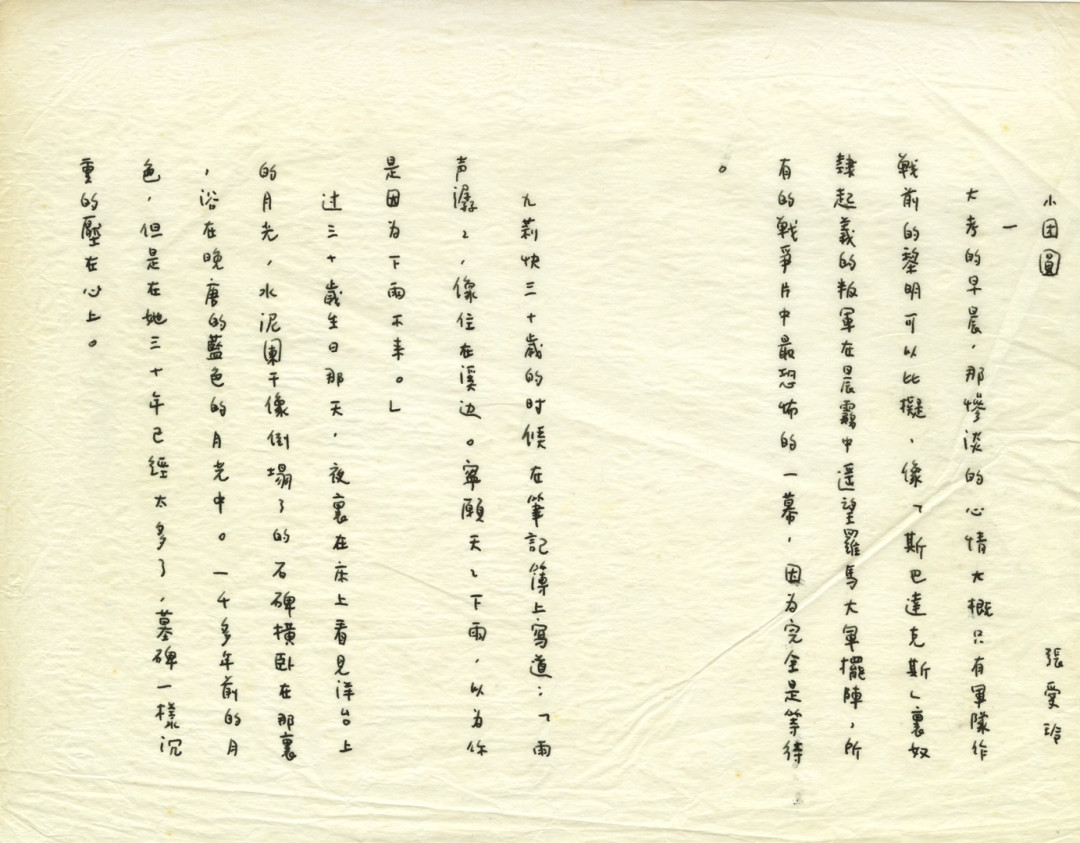 小团圓
張愛玲
一
大考的早晨，那惨淡的心情大概只有軍隊作
戰前的黎明可以比擬，像「斯巴達克斯」裏奴
隸起義的叛軍在晨霧中遥望羅馬大軍擺陣，所
有的戰爭片中最恐怖的一幕，因为完全是等待
。
九莉快三十歲的时候在筆記簿上寫道：「雨
声潺々，像住在溪边。寧願天々下雨，以为你
是因为下雨不来。」
过三十歲生日那天，夜裏在床上看見洋台上
的月光，水泥闌干像倒塌了的石碑横卧在那裏
，浴在晚唐的藍色的月光中。一千多年前的月
色，但是在她三十年已經太多了，墓碑一樣沉
重的壓在心上。